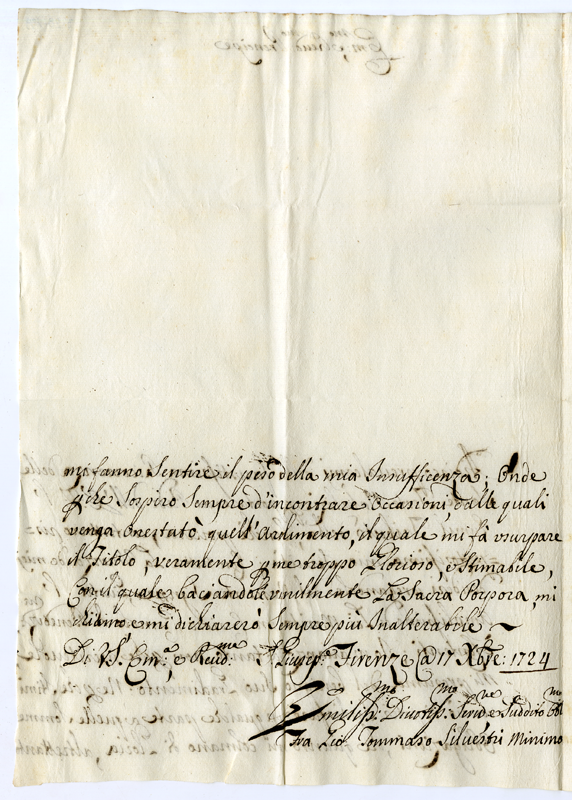 mi fanno Sentire il peso della mia Insufficenza; Onde
pche Sospiro Sempre d'incontrare Occasioni, dalle quali
venga Onestato quell'Ardimento, il quale mi fà vsurpare
il Titolo, veramente p me troppo Glorioso, e Stimabile,
Con il quale baciandole vmilmente La Sacra Porpora, mi
chiamo e mi dichiarerò Sempre più Inalterabile ~
Di V.S. Em.a, e Reud.ma Firenze @ 17 Xbre: 1724
Vmiliss.mo Diuotiss.mo Seru.re e Suddito Obl.mo
Fra Tommaso Siluestri Minimo